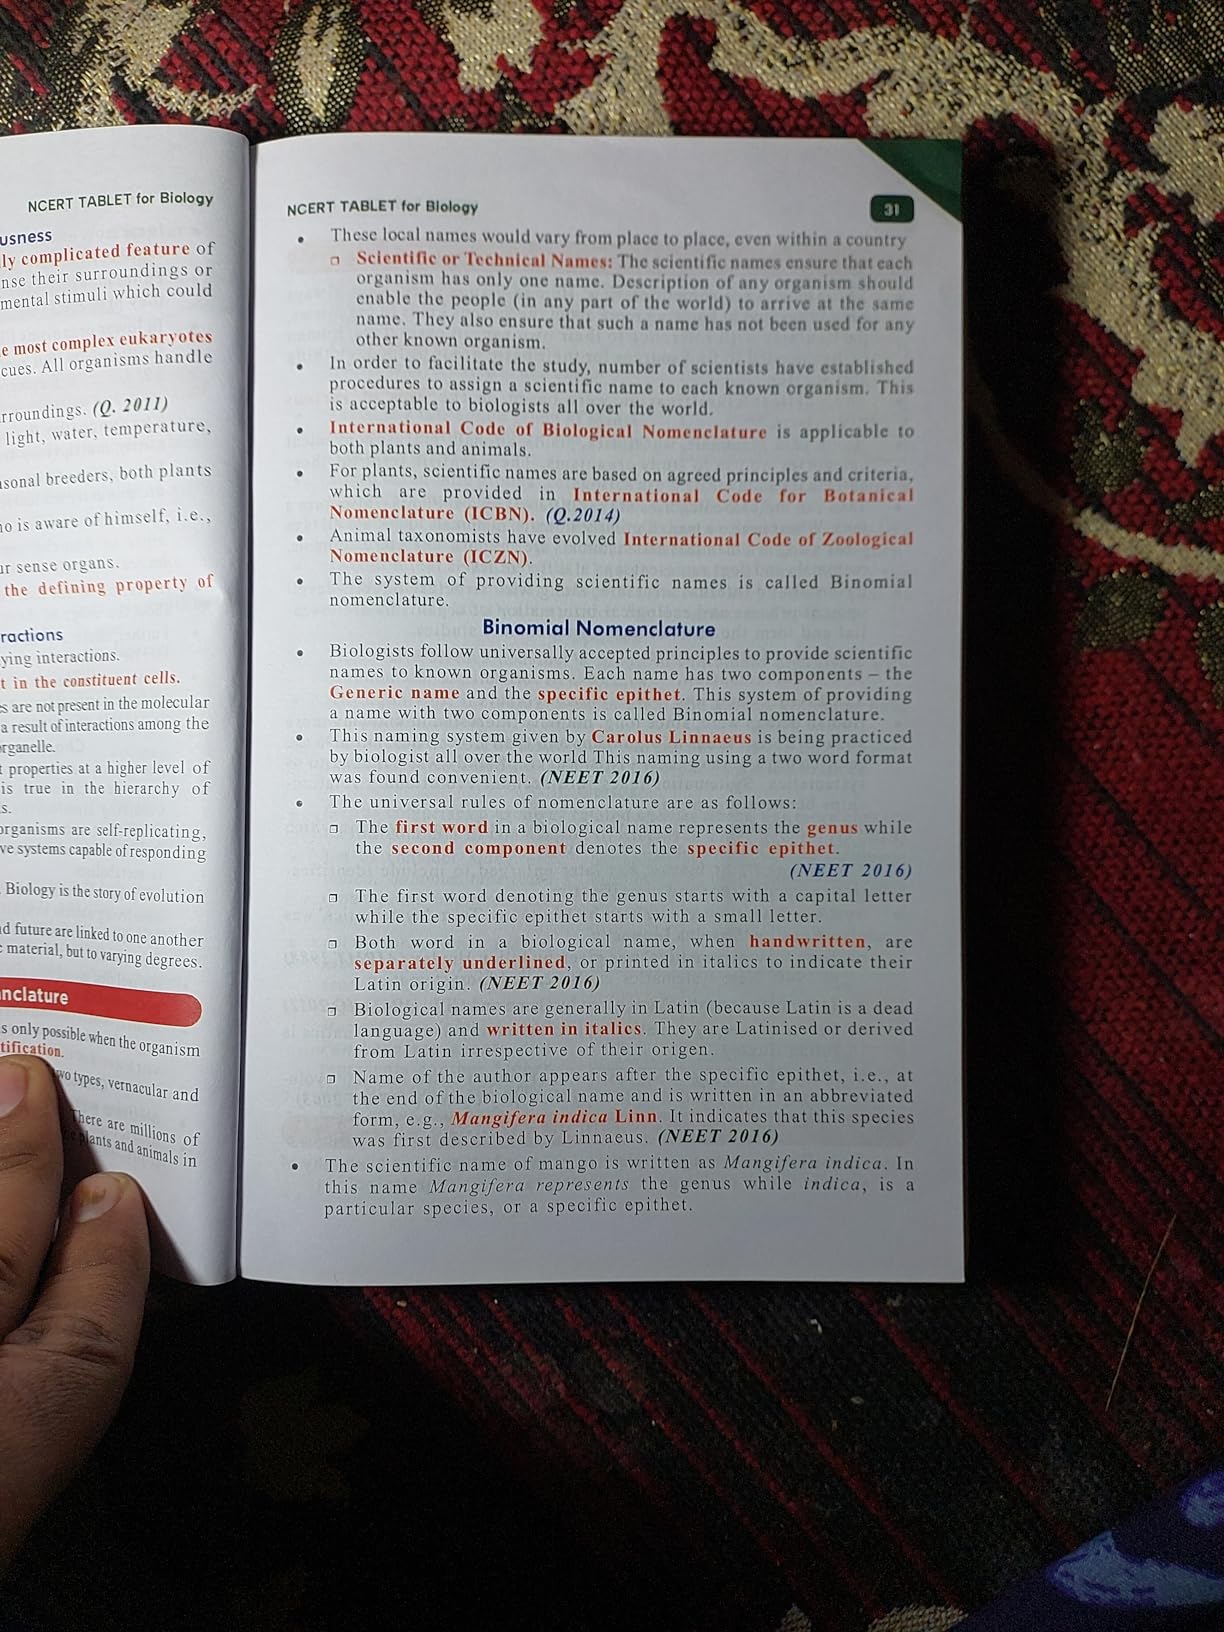 NCERT TABLET for Biology
usness
ly complicated feature of
nse their surroundings or
mental stimuli which could
e most complex eukaryotes
cues. All organisms handle
rroundings. (Q. 2011)
light, water, temperature,
asonal breeders, both plants
ho is aware of himself, i.e.,
ur sense organs.
the defining property of
ractions
ying interactions.
t in the constituent cells.
es are not present in the molecular
a result of interactions among the
organelle.
t properties at a higher level of
is true in the hierarchy of
s.
organisms are self-replicating,
ve systems capable of responding
Biology is the story of evolution
nd future are linked to one another
c material, but to varying degrees.
nclature
s only possible when the organism
tification.
wo types, vernacular and
There are millions of
plants and animals in
NCERT TABLET for Biology 31
• These local names would vary from place to place, even within a country
❒ Scientific or Technical Names: The scientific names ensure that each
organism has only one name. Description of any organism should
enable the people (in any part of the world) to arrive at the same
name. They also ensure that such a name has not been used for any
other known organism.
• In order to facilitate the study, number of scientists have established
procedures to assign a scientific name to each known organism. This
is acceptable to biologists all over the world.
• International Code of Biological Nomenclature is applicable to
both plants and animals.
• For plants, scientific names are based on agreed principles and criteria,
which are provided in International Code for Botanical
Nomenclature (ICBN). (Q.2014)
• Animal taxonomists have evolved International Code of Zoological
Nomenclature (ICZN).
• The system of providing scientific names is called Binomial
nomenclature.
Binomial Nomenclature
• Biologists follow universally accepted principles to provide scientific
names to known organisms. Each name has two components – the
Generic name and the specific epithet. This system of providing
a name with two components is called Binomial nomenclature.
• This naming system given by Carolus Linnaeus is being practiced
by biologist all over the world This naming using a two word format
was found convenient. (NEET 2016)
• The universal rules of nomenclature are as follows:
❒ The first word in a biological name represents the genus while
the second component denotes the specific epithet.
(NEET 2016)
❒ The first word denoting the genus starts with a capital letter
while the specific epithet starts with a small letter.
❒ Both word in a biological name, when handwritten, are
separately underlined, or printed in italics to indicate their
Latin origin. (NEET 2016)
❒ Biological names are generally in Latin (because Latin is a dead
language) and written in italics. They are Latinised or derived
from Latin irrespective of their origen.
❒ Name of the author appears after the specific epithet, i.e., at
the end of the biological name and is written in an abbreviated
form, e.g., Mangifera indica Linn. It indicates that this species
was first described by Linnaeus. (NEET 2016)
• The scientific name of mango is written as Mangifera indica. In
this name Mangifera represents the genus while indica, is a
particular species, or a specific epithet.